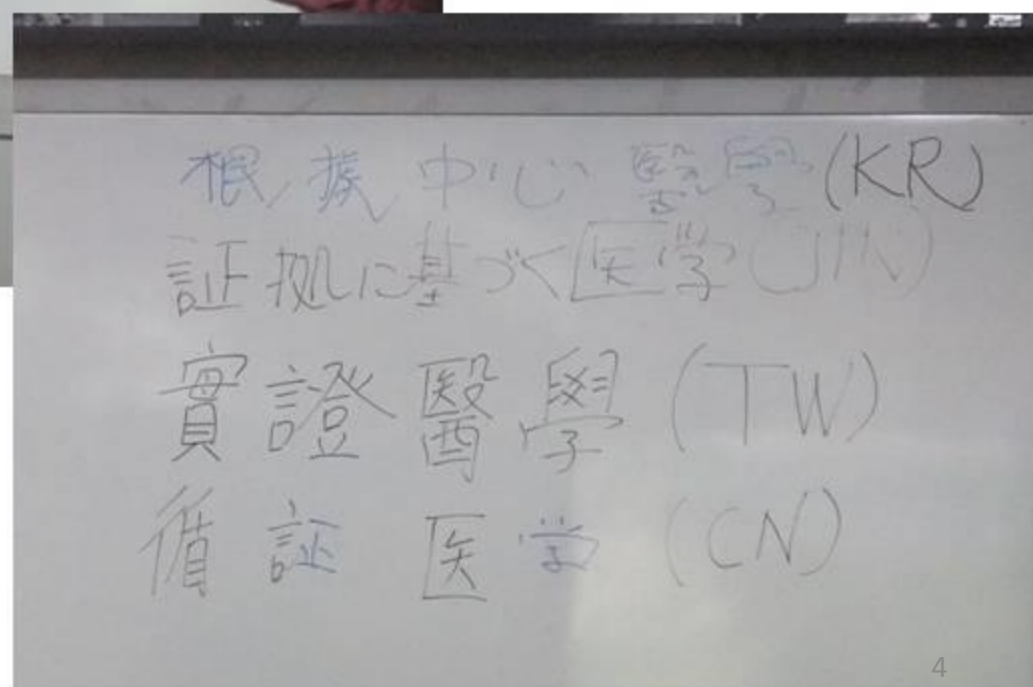 根據中心醫學 (KR)
証拠に基づく医学
實證醫學 (TW)
循証医学 (CN)
4